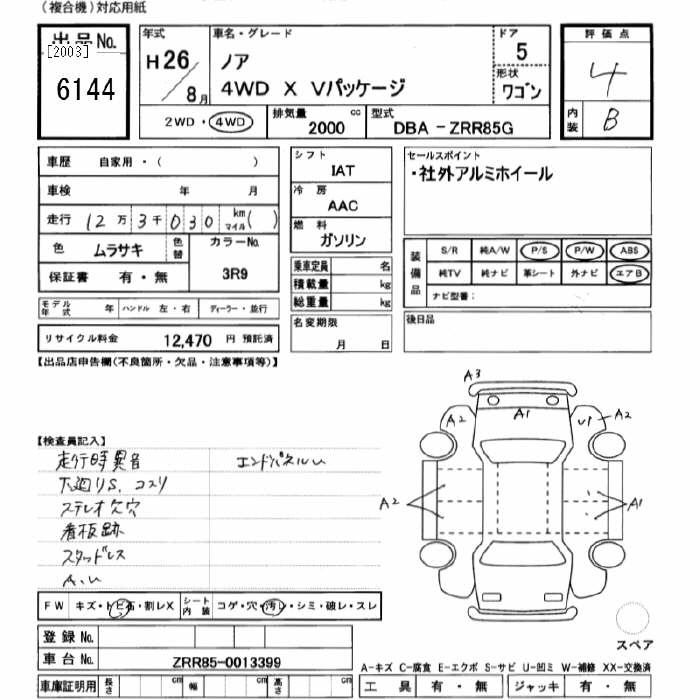 (複合機)対応用紙
出品No.
[2003]
6144
年式
H26/8月
車名・グレード
ノア
4WD X Vパッケージ
ドア
5
形状
ワゴン
評価点
4
内装
B
2WD・4WD
排気量
2000 cc
型式
DBA - ZRR85G
車歴 自家用・( )
車検 年 月
走行 12万3千030 km マイル( )
色 ムラサキ 色替 カラーNo.
3R9
保証書 有・無
モデル年式 年 ハンドル 左・右 ディーラー・並行
リサイクル料金 12,470 円 預託済
シフト
IAT
冷房
AAC
燃料
ガソリン
乗車定員 名
積載量 kg
総重量 kg
名変期限
月 日
セールスポイント
・社外アルミホイール
装備品
S/R 純A/W P/S P/W ABS
純TV 純ナビ 革シート 外ナビ エアB
ナビ型番:
後日品
【出品店申告欄(不良箇所・欠品・注意事項等)】
【検査員記入】
走行時異音
エンドパネルU
下廻りS、コスリ
ステレオ欠穴
看板跡
スタッドレス
A、U
A3
A2 A1 U1 A2
A2 A1
FW キズ・トビ石・割レX シート内装 コゲ・穴・汚レ・シミ・破レ・スレ
登録No.
車台No. ZRR85-0013399
車庫証明用 長さ cm 幅 cm 高さ cm
スペア
A-キズ C-腐食 E-エクボ S-サビ U-凹ミ W-補修 XX-交換済
工具 有・無 ジャッキ 有・無